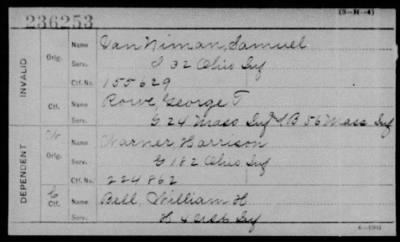 (3-M-4)
236253
INVALID
Orig.
Name Van Niman, Samuel
Serv. I 32 Ohio Inf
Ctf. No. 155629
Ctf.
Name Rowe, George T
Serv. G 24 Mass Inf & B 56 Mass Inf
DEPENDENT
W
Orig.
Name Warner Harrison
Serv. G 182 Ohio Inf
Ctf. No. 224862
C
Ctf.
Name Bell, William H
Serv. H 4 Inf